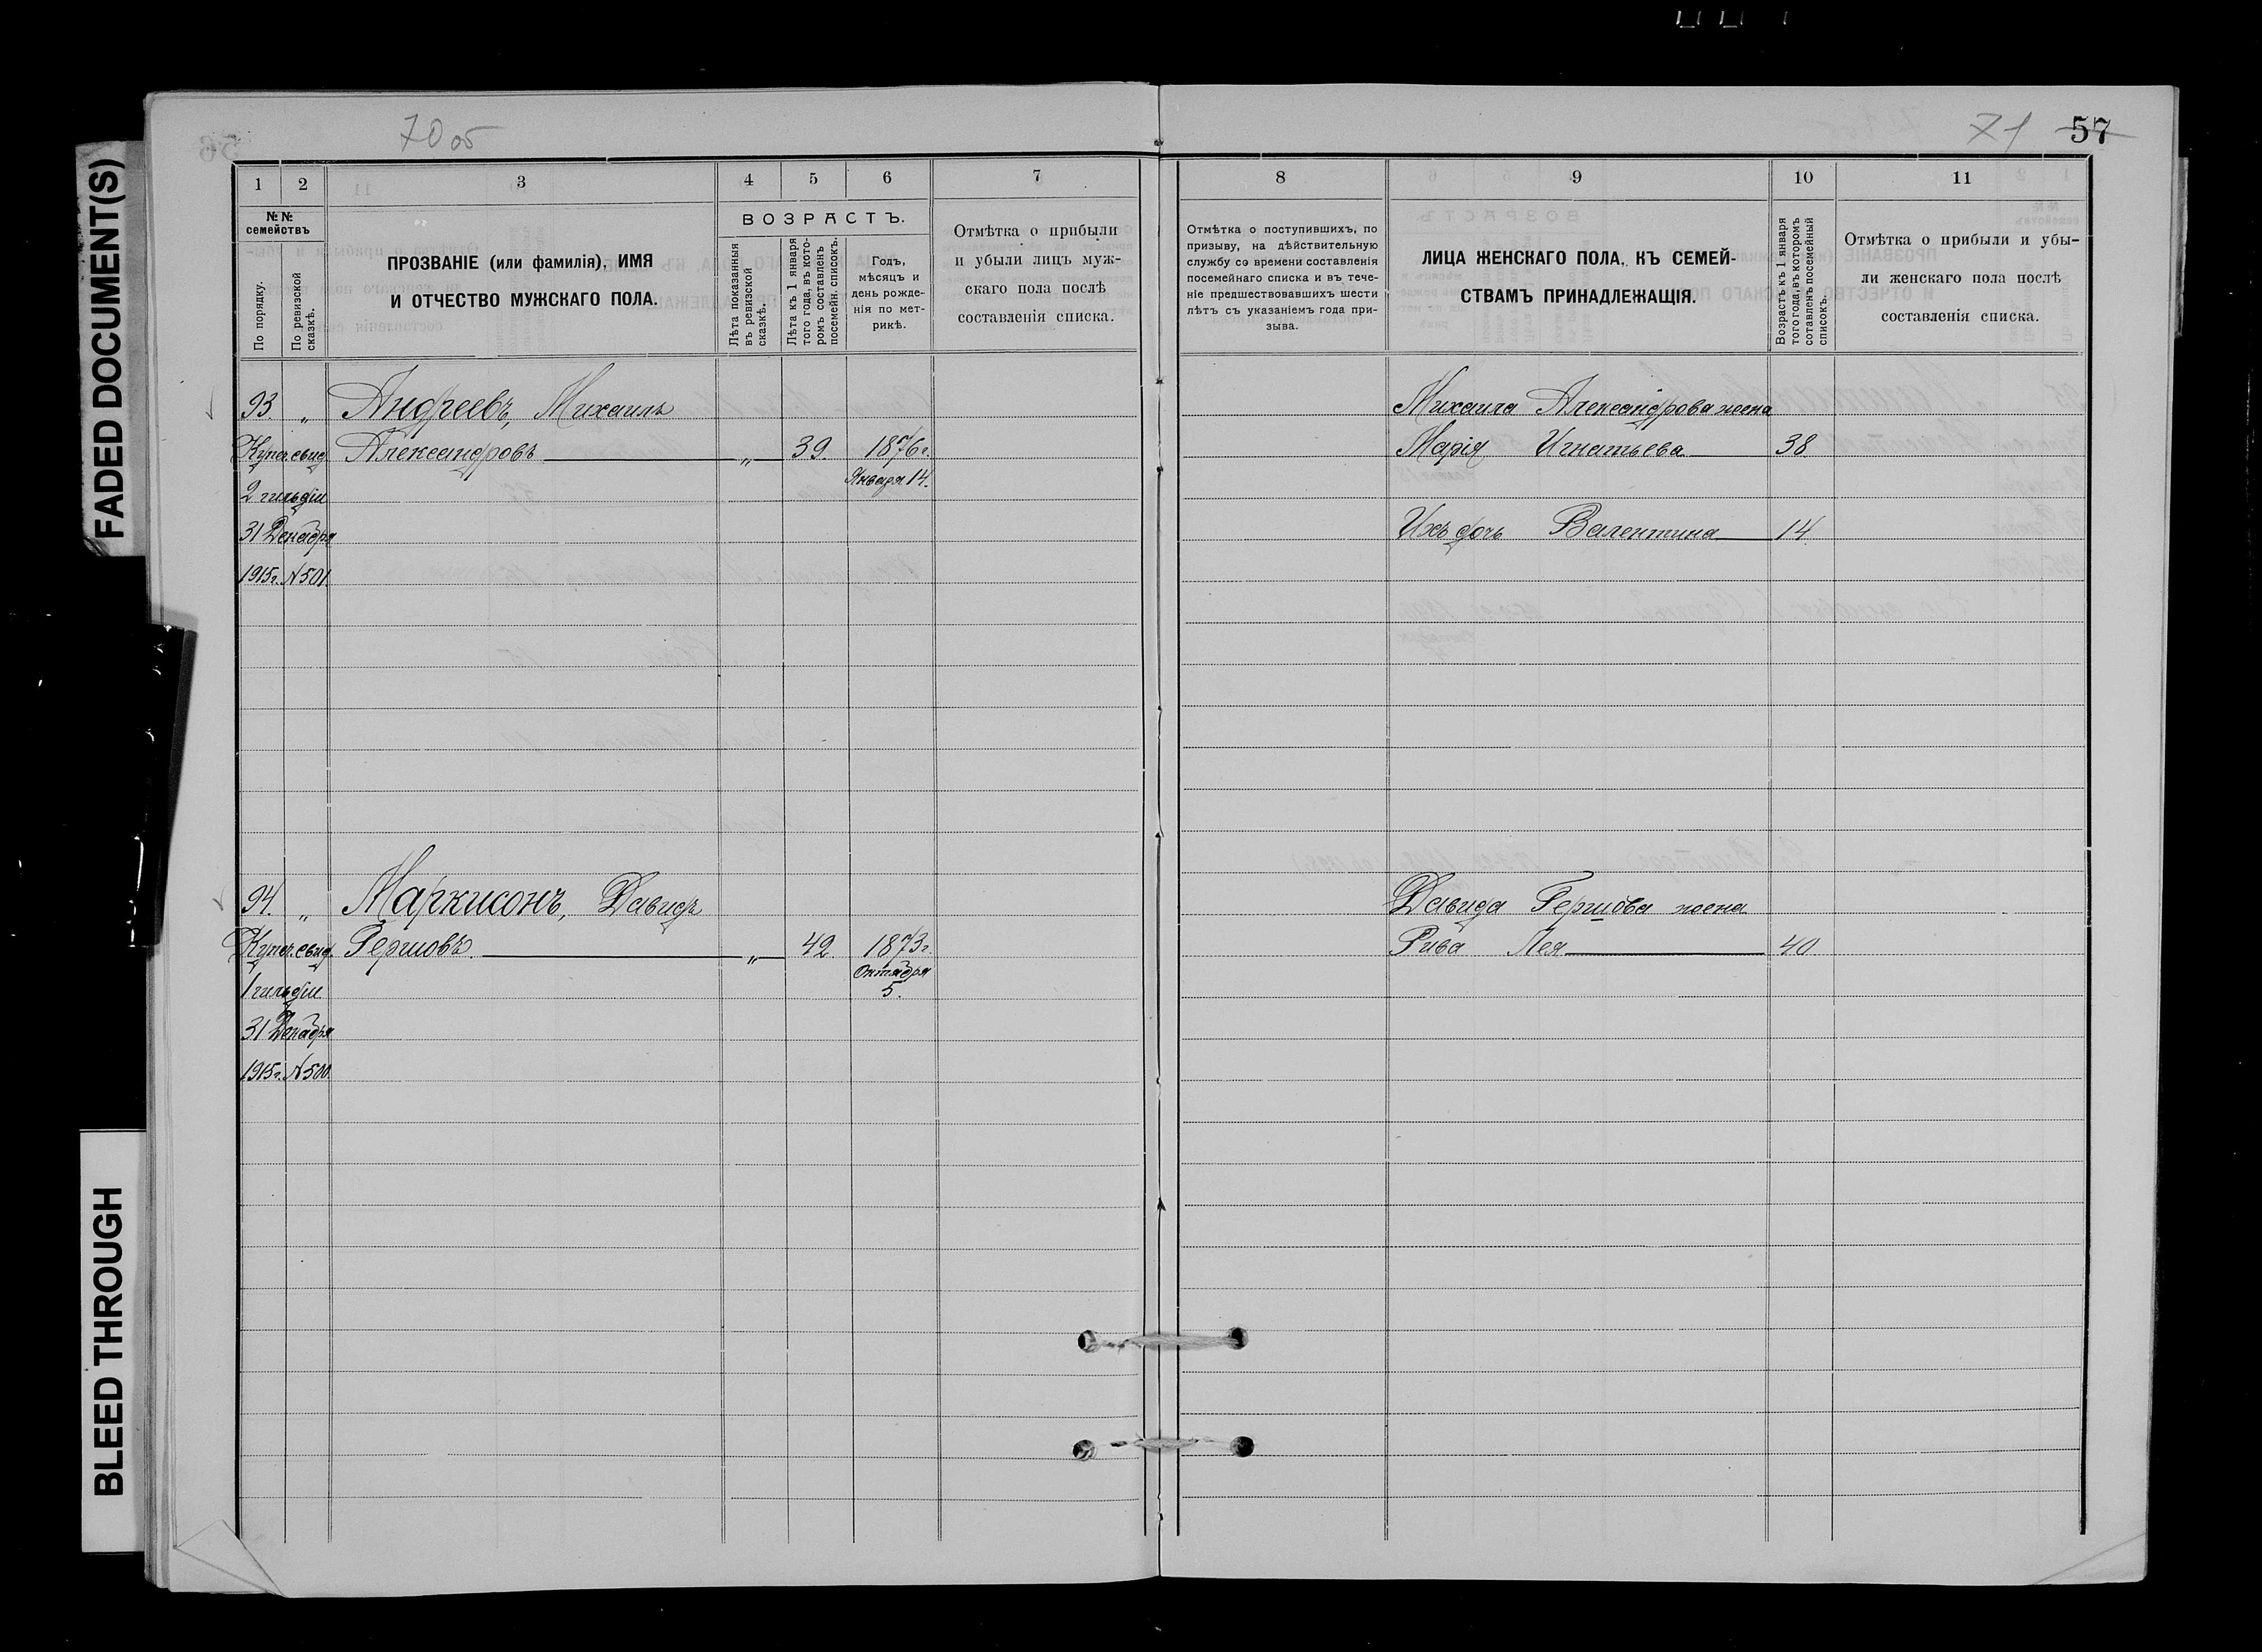 FADED DOCUMENT(S)
BLEED THROUGH
70 об
1 2 3 4 5 6 7
№№ семействъ
По порядку.
По ревизской сказкѣ.
ПРОЗВАНІЕ (или фамилія), ИМЯ
И ОТЧЕСТВО МУЖСКАГО ПОЛА.
ВОЗРАСТЪ.
Лѣта показанныя
въ ревизской
сказкѣ.
Лѣта къ 1 января
того года, въ кото-
ромъ составленъ
посемейн. списокъ.
Годъ,
мѣсяцъ и
день рожде-
нія по мет-
рикѣ.
Отмѣтка о прибыли
и убыли лицъ муж-
скаго пола послѣ
составленія списка.
93 „ Андреевъ, Михаилъ
Купеч. свид. Александровъ „ 39. 1876г.
Января 14.
2 гильдіи
31 Декабря
1915г. №501.
94. „ Маркисонъ, Давидъ
Купеч. свид. Гершовъ. „ 42 1873г.
Октября
5.
1 гильдіи
31 Декабря
1915г. №500.
71 57
8 9 10 11
Отмѣтка о поступившихъ, по
призыву, на дѣйствительную
службу со времени составленія
посемейнаго списка и въ тече-
ніе предшествовавшихъ шести
лѣтъ съ указаніемъ года при-
зыва.
ЛИЦА ЖЕНСКАГО ПОЛА, КЪ СЕМЕЙ-
СТВАМЪ ПРИНАДЛЕЖАЩІЯ.
Возрастъ къ 1 января
того года, въ которомъ
составленъ посемейный
списокъ.
Отмѣтка о прибыли и убы-
ли женскаго пола послѣ
составленія списка.
Михаила Александрова жена
Марія Игнатьева 38
Ихъ дочь Валентина 14.
Давида Гершова жена
Рива Лея 40